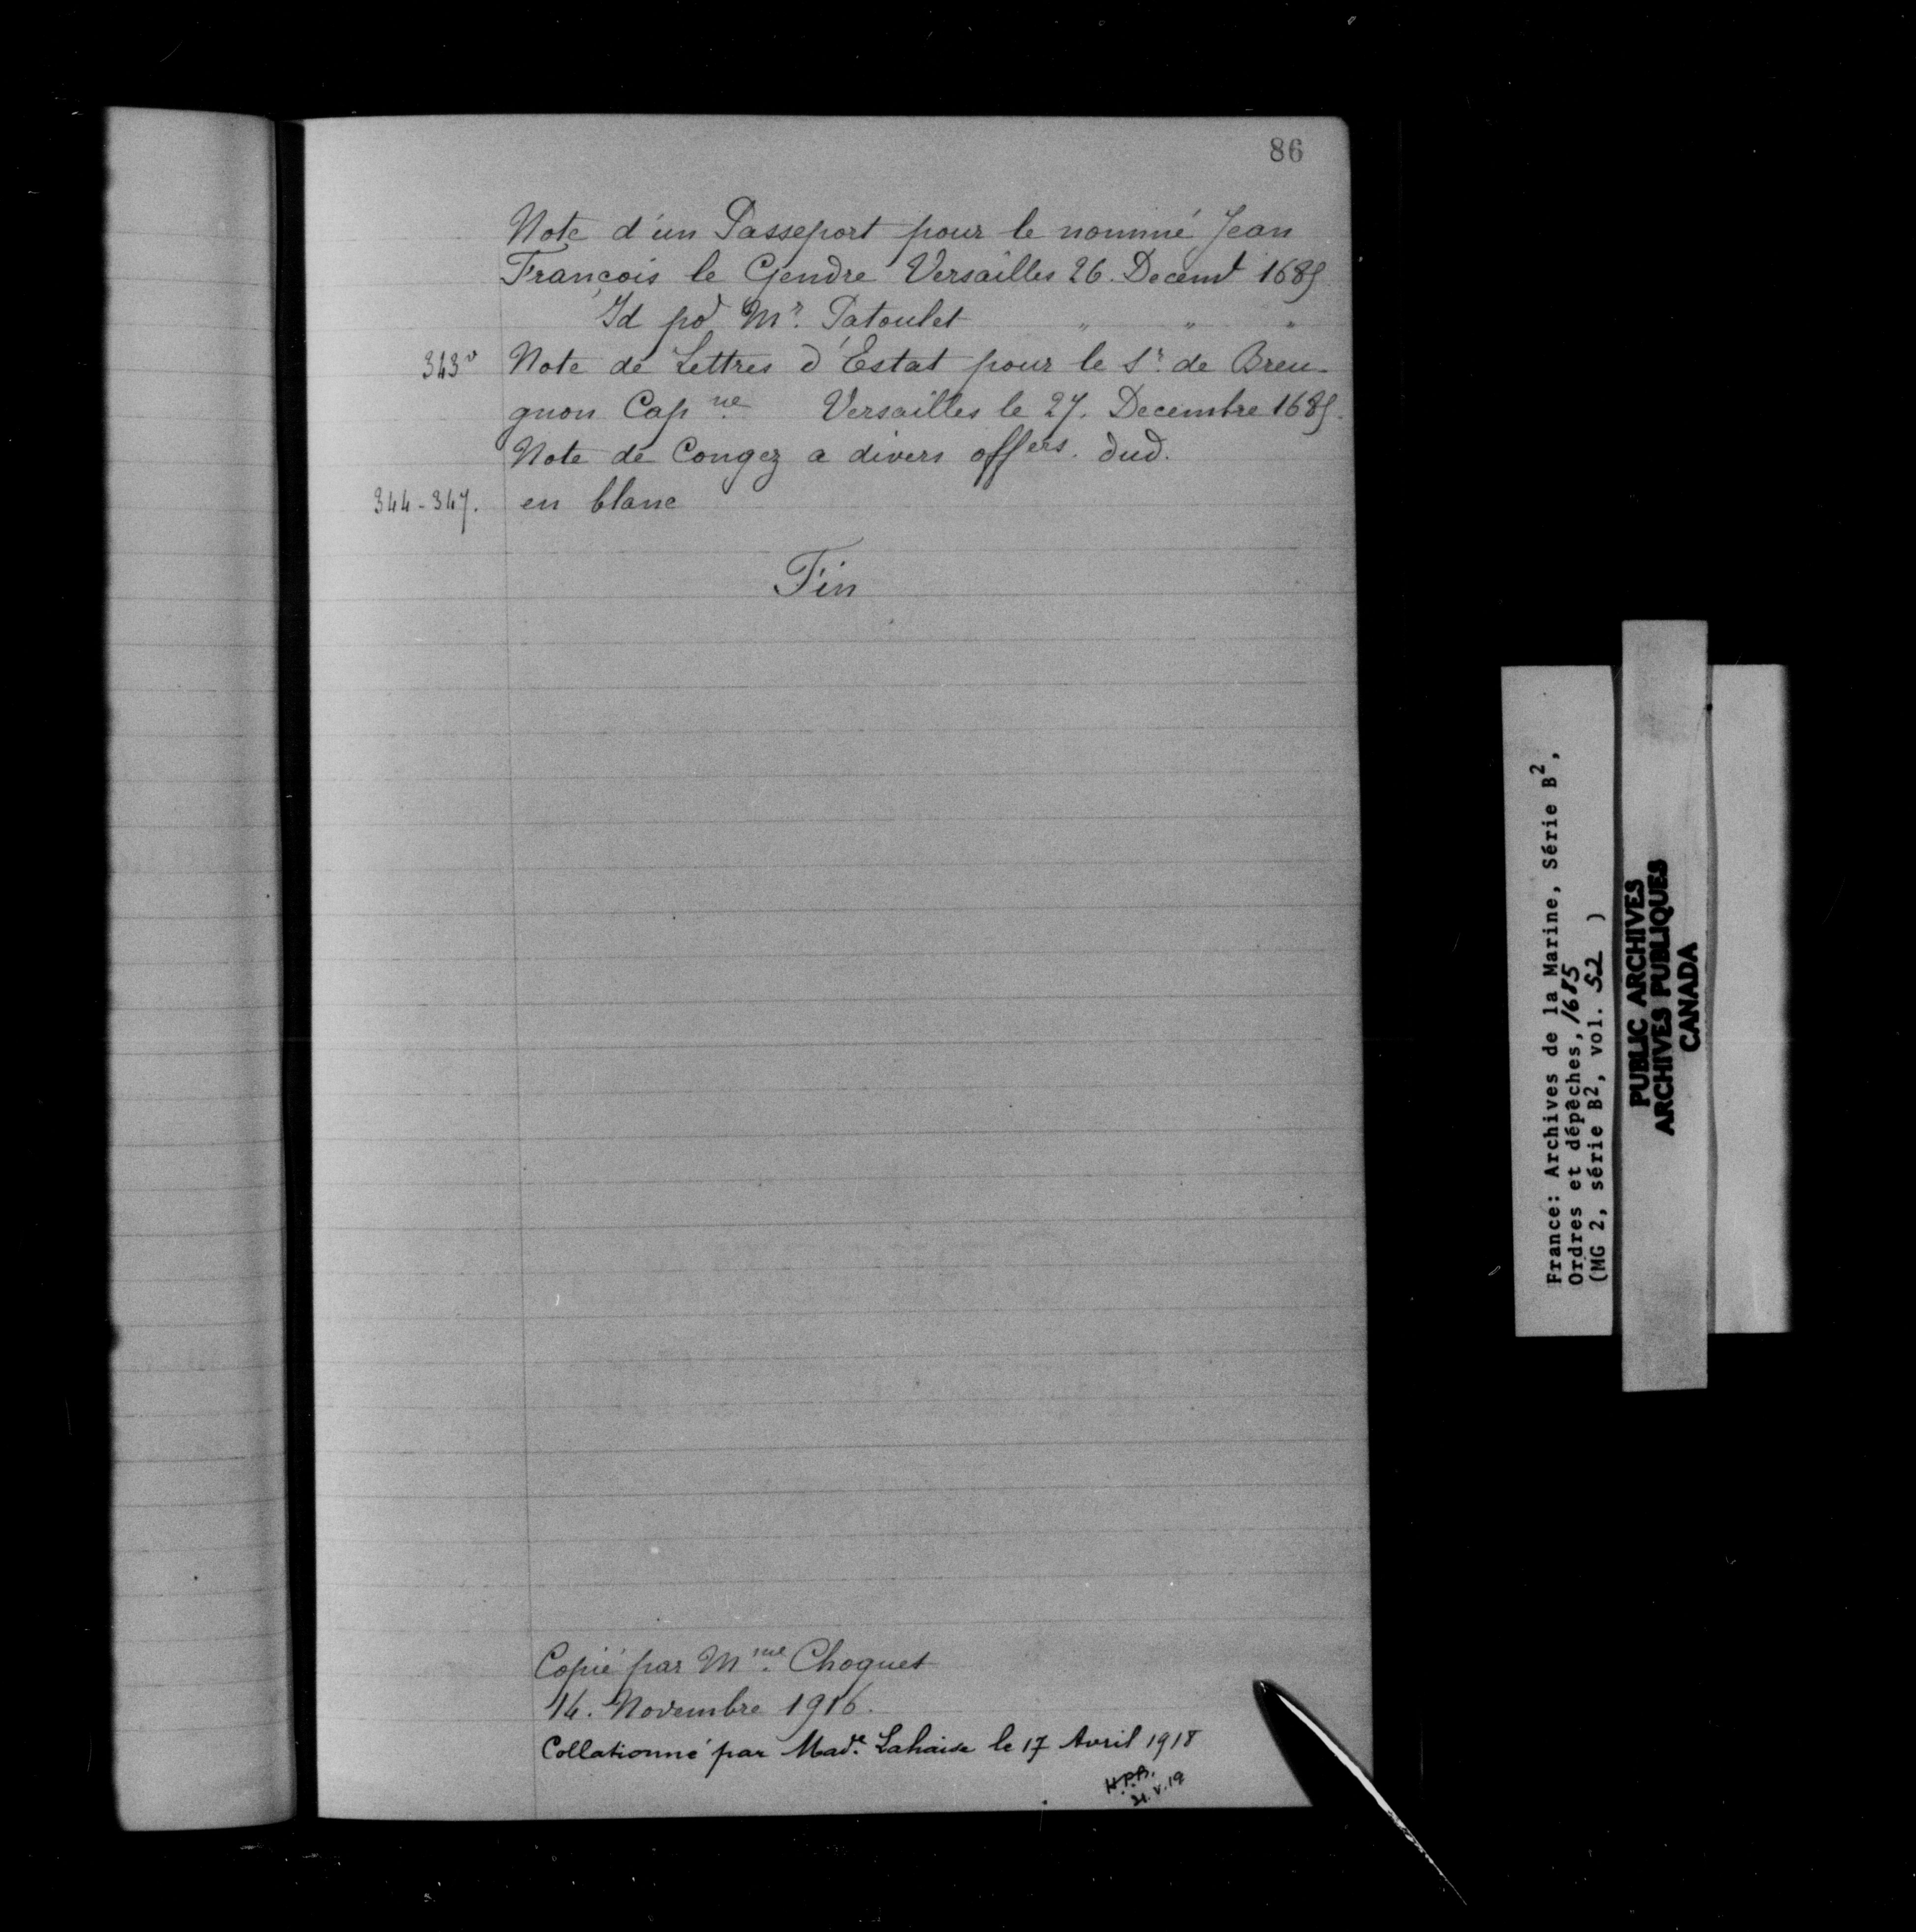 86
Note d'un Passeport pour le nommé Jean
François le Gendre Versailles 26. Decemb 1685
Id pr Mr. Patoulet " " "
343v Note de Lettres d'Estat pour le Sr. de Breu-
gnon Capne. Versailles le 27. Decembre 1685.
Note de Congez a divers offers. dud.
344-347. en blanc
Fin
Copié par Mme. Choquet
14. Novembre 1916.
Collationné par Made. Lahaise le 17 Avril 1918
H.P.B.
21.V.19
France: Archives de la Marine, Série B2,
Ordres et dépêches, 1685
(MG 2, série B2, vol. 52 )
PUBLIC ARCHIVES
ARCHIVES PUBLIQUES
CANADA